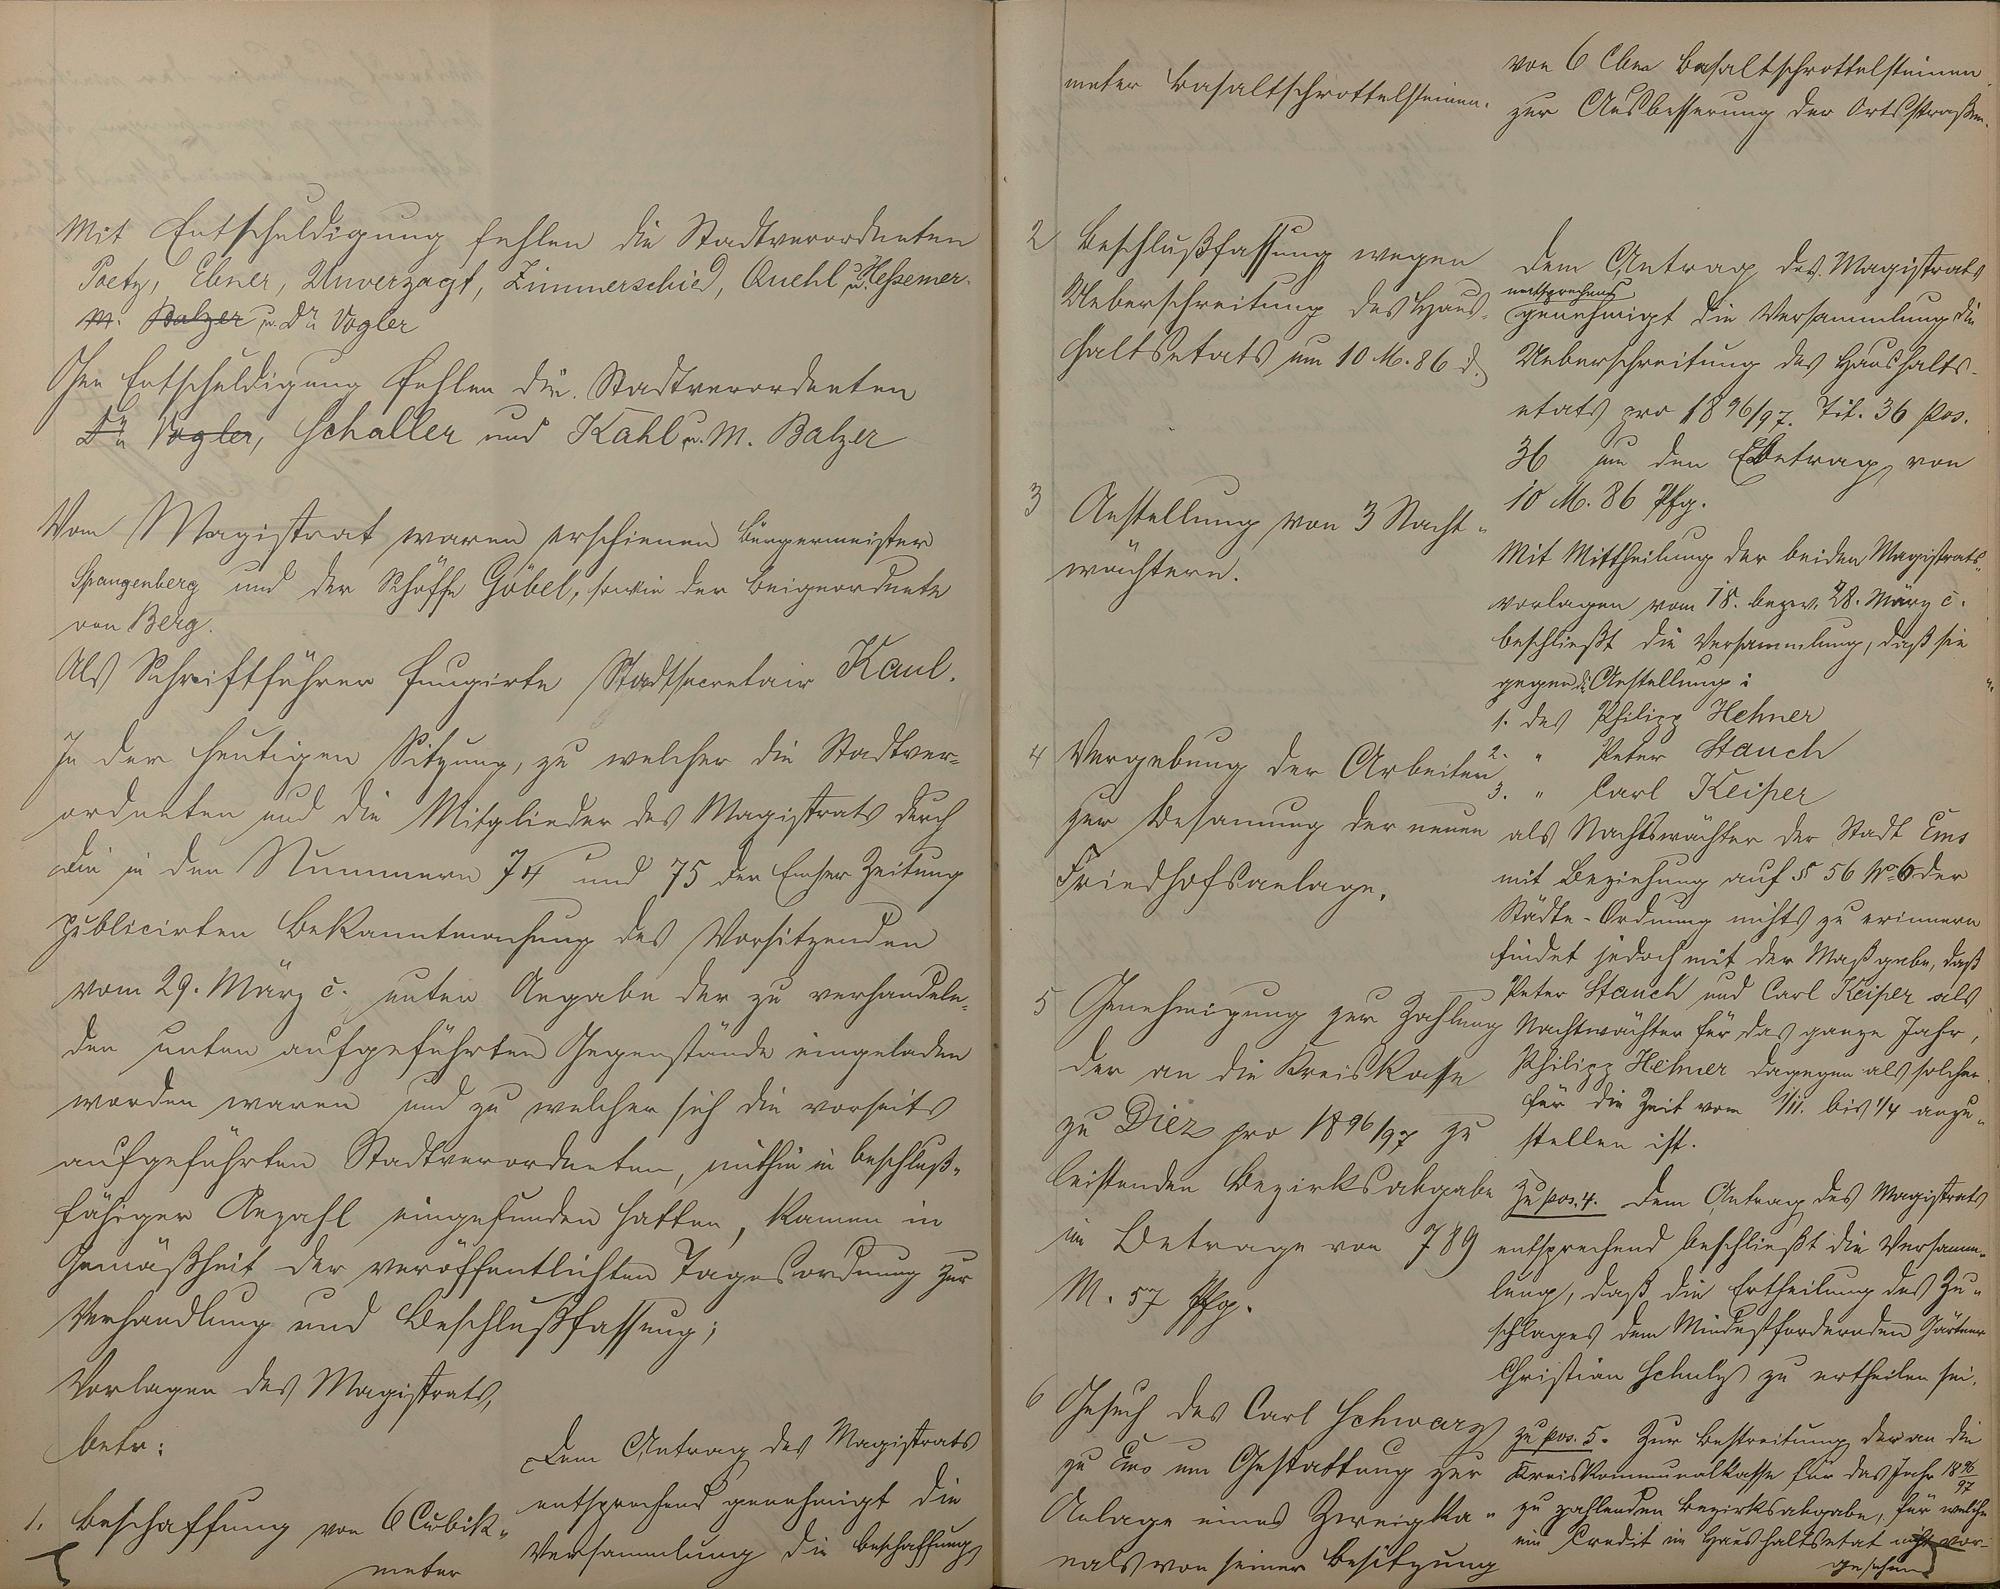 Mit Entschuldigung fehlen die Stadtverordneten
Poety, Ebner, Unverzagt, Zimmerschied, Quehl u. Hessemer.
M. Balzer u. Dr. Vogler
Ohne Entschuldigung fehlen die Stadtverordneten
Dr. Vogler, Schaller und Kahl u. M. Balzer
Vom Magistrat waren erschienen Bürgermeister
Spangenberg und der Schöffe Göbel, sowie der Beigeordnete
von Berg.
Als Schriftführer fungirte Stadtsecretair Kaul.
In der heutigen Sitzung, zu welcher die Stadtver-
ordneten und die Mitglieder des Magistrats durch
die in den Nummern 74 und 75 der Emser Zeitung
publicirten Bekanntmachung des Vorsitzenden
vom 29. März c. unter Angabe der zu verhandeln-
den unten aufgeführten Gegenstände eingeladen
worden waren und zu welcher sich die vorseits
aufgeführten Stadtverordneten, mithin in beschluß-
fähiger Anzahl eingefunden hatten, kamen in
Gemäßheit der veröffentlichten Tagesordnung zur
Verhandlung und Beschlußfassung;
Vorlagen des Magistrats,
betr:
1. Beschaffung von 6 Cubik-
meter
Dem Antrag des Magistrats
entsprechend genehmigt die
Versammlung die Beschaffung
meter Basaltschrottelsteinen.
von 6 Cbm Basaltschrottelsteinen
zur Ausbesserung der Ortsstraßen.
2 Beschlußfassung wegen
Ueberschreitung des Haus-
haltsetats um 10 M. 86 d.
Dem Antrag des Magistrats
entsprechend
genehmigt die Versammlung die
Ueberschreitung des Haushalts-
etats pro 1896/97. Tit. 36 Pos.
36 um den Betrag von
10 M. 86 Pfg.
3 Anstellung von 3 Nacht-
wächtern.
Mit Mittheilung der beiden Magistrats-
vorlagen vom 18. bezw. 28. März c.
beschließt die Versammlung, daß sie
gegen die Anstellung:
1. des Philipp Hehner
2. " Peter Stauch
3. " Carl Keiper
als Nachtswächter der Stadt Ems
mit Beziehung auf § 56 No 6 der
Städte-Ordnung nichts zu erinnern
findet jedoch mit der Maßgabe, daß
Peter Stauch und Carl Keiper als
Nachtwächter für das ganze Jahr,
Philipp Hehner dagegen als solcher
für die Zeit vom 1/11. bis 1/4 anzu-
stellen ist.
4 Vergebung der Arbeiten
zur Besamung der neuen
Friedhofsanlage.
Zu pos. 4. Dem Antrag des Magistrats
entsprechend beschließt die Versamm-
lung, daß die Ertheilung des Zu-
schlages dem Mindestfordernden Gärtner
Christian Schulz zu ertheilen sei.
5 Genehmigung zur Zahlung
der an die Kreiskasse
zu Diez pro 1896/97 zu
leistenden Bezirksabgabe
im Betrage von 789
M. 57 Pfg.
zu pos. 5. Zur Bestreitung der an die
Kreiskommunalkasse für das Jahr 1896/97
zu zahlenden Bezirksabgabe, für welche
ein Credit im Haushaltsetat nicht vor-
gesehen
6 Gesuch des Carl Schwarz
zu Ems um Gestattung zur
Anlage eines Zweigka-
nals von seiner Besitzung